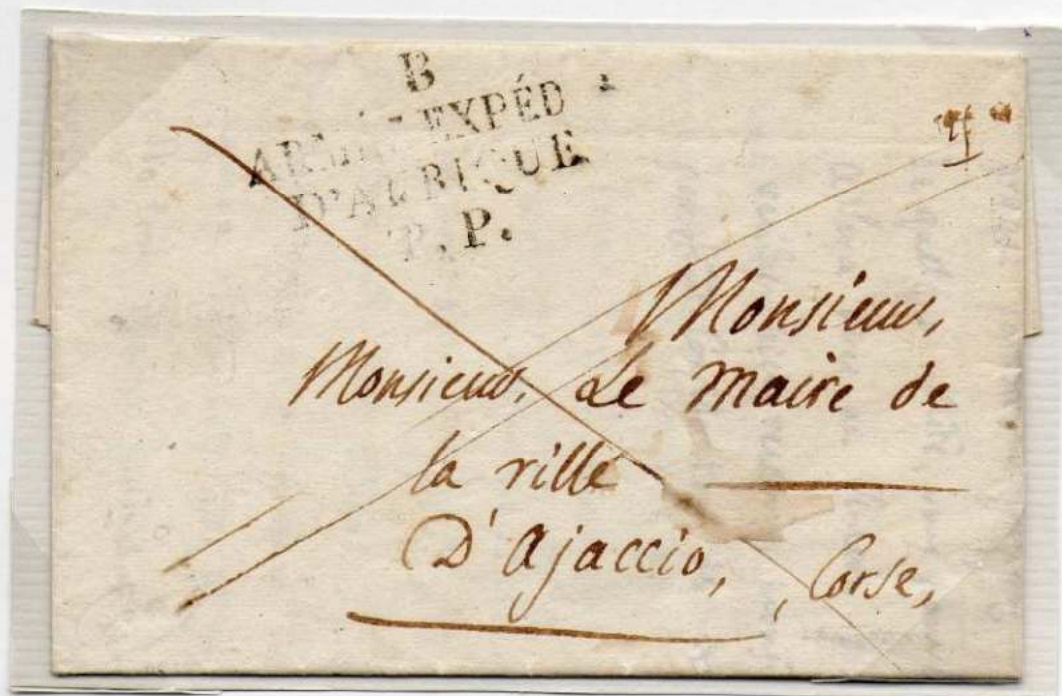 B
ARMÉE EXPÉD
D'AFRIQUE
P. P.
Monsieur,
Monsieur. Le Maire de
la ville
D'Ajaccio, Corse,